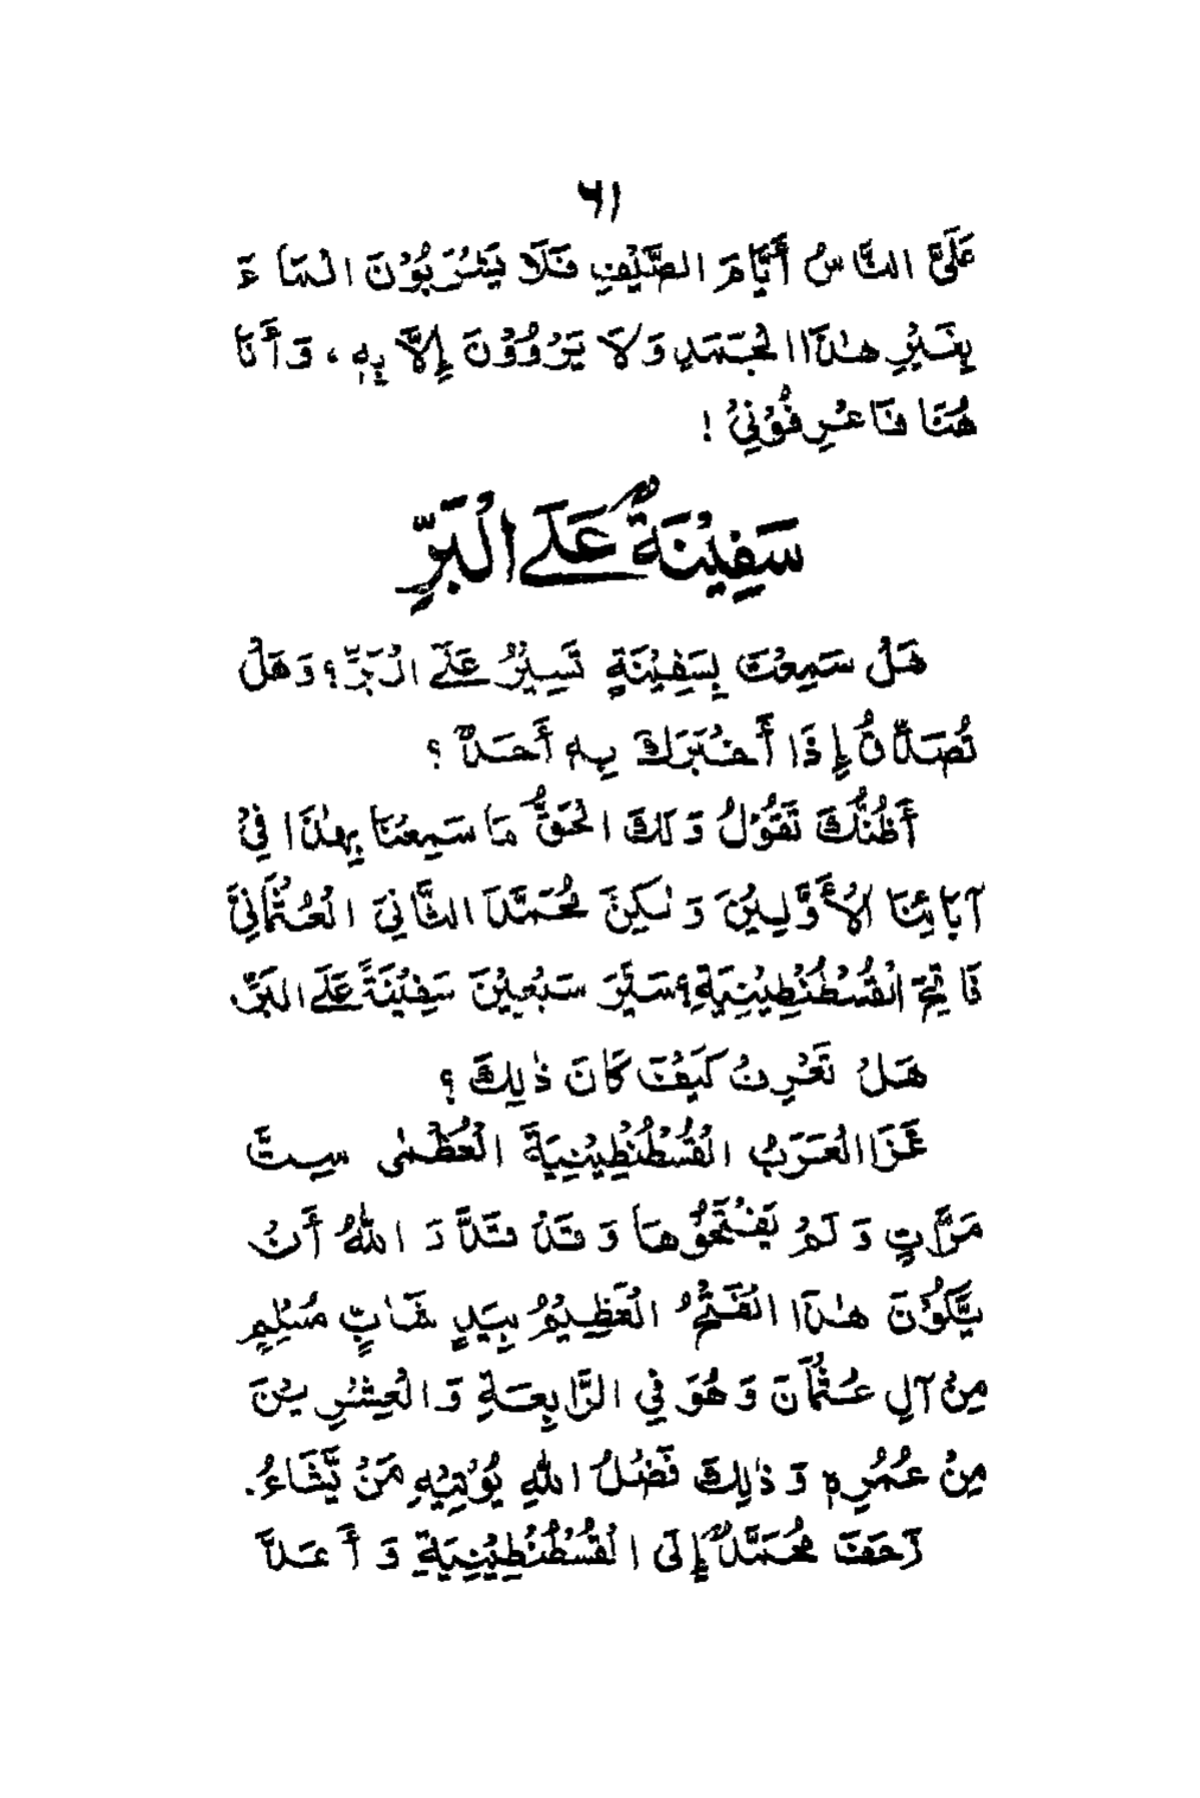 ٦١
عَلَيَّ النَّاسُ أَيَّامَ الصَّيْفِ فَلَا يَشْرَبُوْنَ الْمَاءَ
بِغَيْرِ هٰذَا الْجَمَدِ وَلَا يَرْوُوْنَ إِلَّا بِهٖ، وَأَنَا
هُنَا فَاعْرِفُوْنِيْ!
سَفِيْنَةٌ عَلَى الْبَرِّ
هَلْ سَمِعْتَ بِسَفِيْنَةٍ تَسِيْرُ عَلَى الْبَرِّ؟ وَهَلْ
تُصَدِّقُ إِذَا أَخْبَرَكَ بِهٖ أَحَدٌ؟
أَظُنُّكَ تَقُوْلُ وَلَكَ الْحَقُّ مَا سَمِعْنَا بِهٰذَا فِيْ
آبَائِنَا الْأَوَّلِيْنَ وَلٰكِنَّ مُحَمَّدَ الثَّانِيَ الْعُثْمَانِيَّ
فَاتِحَ الْقُسْطُنْطِيْنِيَةِ؟ سَيَّرَ سَبْعِيْنَ سَفِيْنَةً عَلَى الْبَرِّ.
هَلْ تَعْرِفُ كَيْفَ كَانَ ذٰلِكَ؟
غَزَا الْعَرَبُ الْقُسْطُنْطِيْنِيَةَ الْعُظْمٰى سِتَّ
مَرَّاتٍ وَلَمْ يَفْتَحُوْهَا وَقَدْ قَدَّرَ اللّٰهُ أَنْ
يَّكُوْنَ هٰذَا الْفَتْحُ الْعَظِيْمُ بِيَدِ شَابٍّ مُسْلِمٍ
مِنْ آلِ عُثْمَانَ وَهُوَ فِي الرَّابِعَةِ وَالْعِشْرِيْنَ
مِنْ عُمْرِهٖ وَذٰلِكَ فَضْلُ اللّٰهِ يُؤْتِيْهِ مَنْ يَّشَاءُ.
زَحَفَ مُحَمَّدٌ إِلَى الْقُسْطُنْطِيْنِيَةِ وَأَعَدَّ